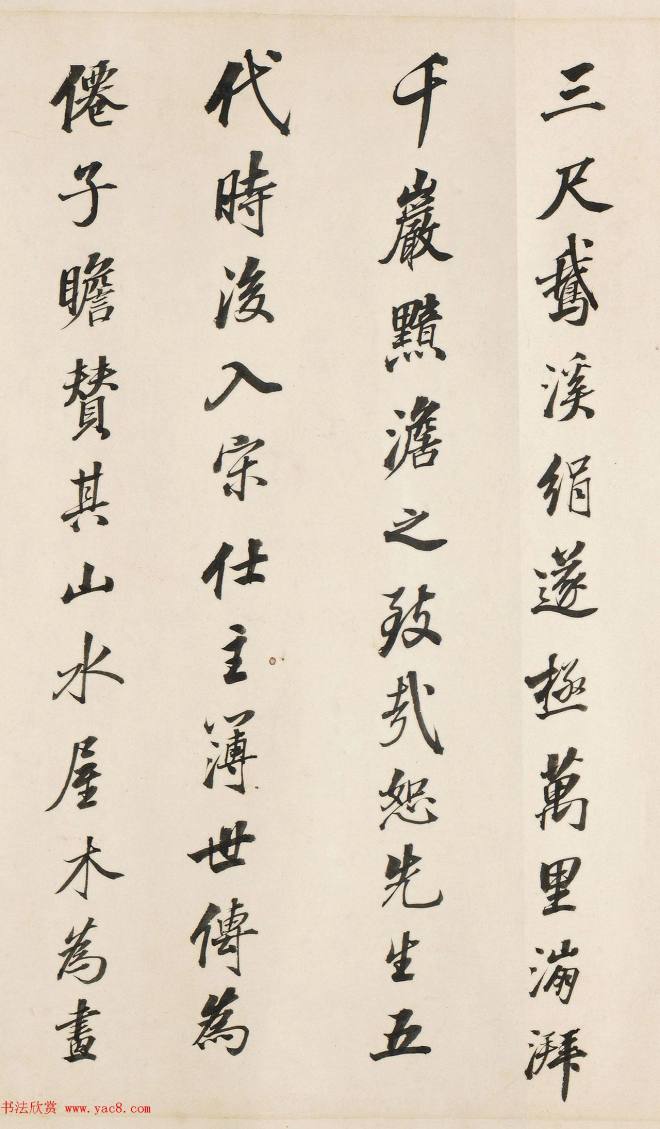 三尺鵝溪絹遂極萬里漰湃
千巖黯澹之致哉恕先生五
代時後入宋仕主簿世傳為
僊子瞻贊其山水屋木為畫
书法欣赏 www.yac8.com